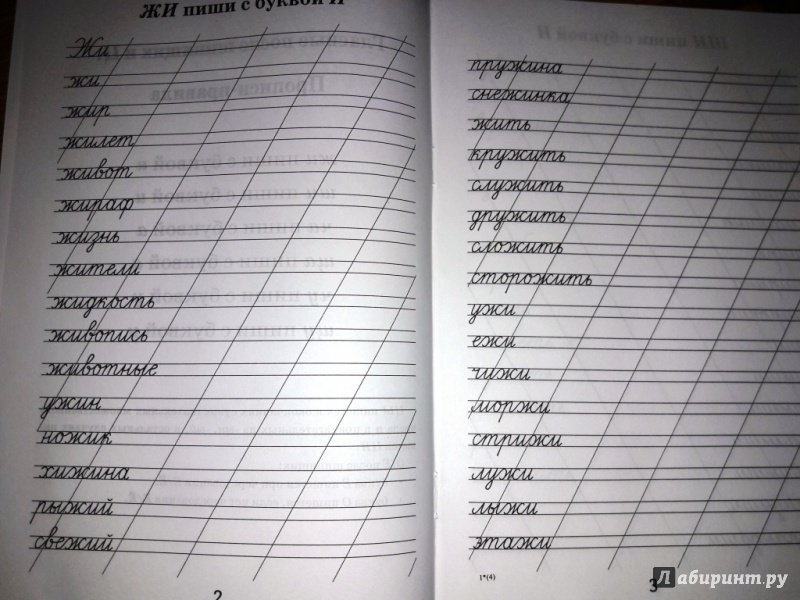 ЖИ пиши с буквой И
Жи
жи
жир
жилет
живот
жираф
жизнь
жители
жидкость
живопись
животные
ужин
ножик
хижина
рыжий
свежий
2
пружина
снежинка
жить
кружить
служить
дружить
сложить
сторожить
ужи
ежи
чижи
моржи
стрижи
лужи
лыжи
этажи
1*(4)
3
Лабиринт.ру